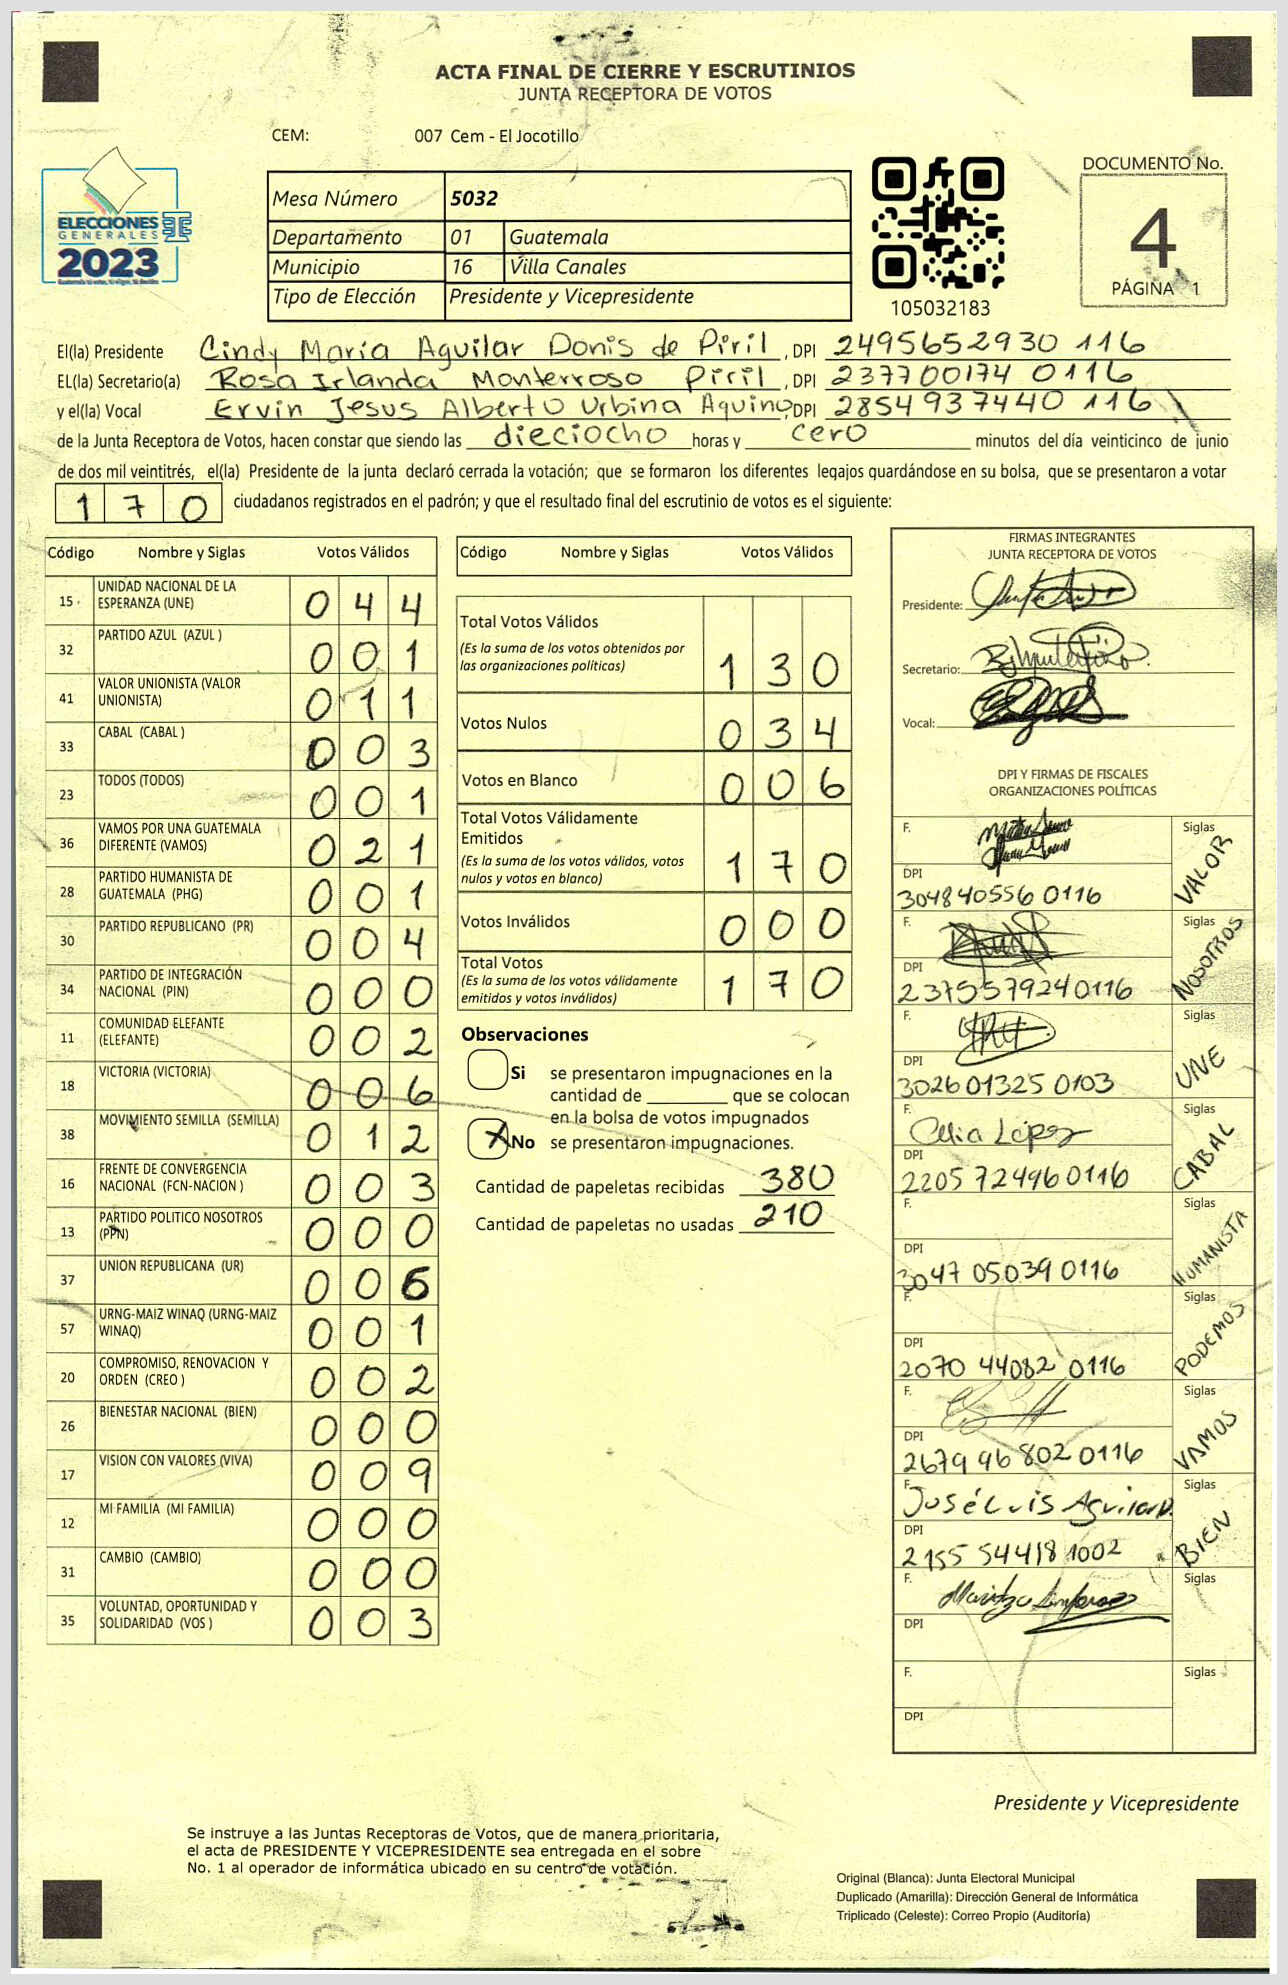 ACTA FINAL DE CIERRE Y ESCRUTINIOS
JUNTA RECEPTORA DE VOTOS
CEM: 007 Cem - El Jocotillo
ELECCIONES
GENERALES
2023
Mesa Número 5032
Departamento 01 Guatemala
Municipio 16 Villa Canales
Tipo de Elección Presidente y Vicepresidente
105032183
DOCUMENTO No.
4
PÁGINA 1
El(la) Presidente Cindy María Aguilar Donis de Piril, DPI 2495652930116
EL(la) Secretario(a) Rosa Irlanda Monterroso Piril, DPI 2377001740116
y el(la) Vocal Ervin Jesus Alberto Urbina Aquino, DPI 2854937440116
de la Junta Receptora de Votos, hacen constar que siendo las dieciocho horas y cero minutos del día veinticinco de junio
de dos mil veintitrés, el(la) Presidente de la junta declaró cerrada la votación; que se formaron los diferentes legajos guardándose en su bolsa, que se presentaron a votar
170 ciudadanos registrados en el padrón; y que el resultado final del escrutinio de votos es el siguiente:
Código Nombre y Siglas Votos Válidos
15 UNIDAD NACIONAL DE LA
ESPERANZA (UNE) 044
32 PARTIDO AZUL (AZUL ) 001
41 VALOR UNIONISTA (VALOR
UNIONISTA) 011
33 CABAL (CABAL ) 003
23 TODOS (TODOS) 001
36 VAMOS POR UNA GUATEMALA
DIFERENTE (VAMOS) 021
28 PARTIDO HUMANISTA DE
GUATEMALA (PHG) 001
30 PARTIDO REPUBLICANO (PR) 004
34 PARTIDO DE INTEGRACIÓN
NACIONAL (PIN) 000
11 COMUNIDAD ELEFANTE
(ELEFANTE) 002
18 VICTORIA (VICTORIA) 006
38 MOVIMIENTO SEMILLA (SEMILLA) 012
16 FRENTE DE CONVERGENCIA
NACIONAL (FCN-NACION ) 003
13 PARTIDO POLITICO NOSOTROS
(PPN) 000
37 UNION REPUBLICANA (UR) 006
57 URNG-MAIZ WINAQ (URNG-MAIZ
WINAQ) 001
20 COMPROMISO, RENOVACION Y
ORDEN (CREO ) 002
26 BIENESTAR NACIONAL (BIEN) 000
17 VISION CON VALORES (VIVA) 009
12 MI FAMILIA (MI FAMILIA) 000
31 CAMBIO (CAMBIO) 000
35 VOLUNTAD, OPORTUNIDAD Y
SOLIDARIDAD (VOS ) 003
Código Nombre y Siglas Votos Válidos
Total Votos Válidos
(Es la suma de los votos obtenidos por
las organizaciones políticas) 130
Votos Nulos 034
Votos en Blanco 006
Total Votos Válidamente
Emitidos
(Es la suma de los votos válidos, votos
nulos y votos en blanco) 170
Votos Inválidos 000
Total Votos
(Es la suma de los votos válidamente
emitidos y votos inválidos) 170
Observaciones
Si se presentaron impugnaciones en la
cantidad de ________ que se colocan
en la bolsa de votos impugnados
X No se presentaron impugnaciones.
Cantidad de papeletas recibidas 380
Cantidad de papeletas no usadas 210
FIRMAS INTEGRANTES
JUNTA RECEPTORA DE VOTOS
Presidente:
Secretario:
Vocal:
DPI Y FIRMAS DE FISCALES
ORGANIZACIONES POLÍTICAS
F. Siglas VALOR
DPI
3048405560116
F. Siglas NOSOTROS
DPI
2375579240116
F. Siglas UNE
DPI
3026013250103
F. Celia López Siglas CABAL
DPI
2205724960116
F. Siglas HUMANISTA
DPI
3047050390116
F. Siglas PODEMOS
DPI
2070440820116
F. Siglas VAMOS
DPI
2679968020116
F. José Luis Aguilar D. Siglas BIEN
DPI
2155544181002
F. Maritza Siglas
DPI
F. Siglas
DPI
Presidente y Vicepresidente
Se instruye a las Juntas Receptoras de Votos, que de manera prioritaria,
el acta de PRESIDENTE Y VICEPRESIDENTE sea entregada en el sobre
No. 1 al operador de informática ubicado en su centro de votación.
Original (Blanca): Junta Electoral Municipal
Duplicado (Amarilla): Dirección General de Informática
Triplicado (Celeste): Correo Propio (Auditoría)